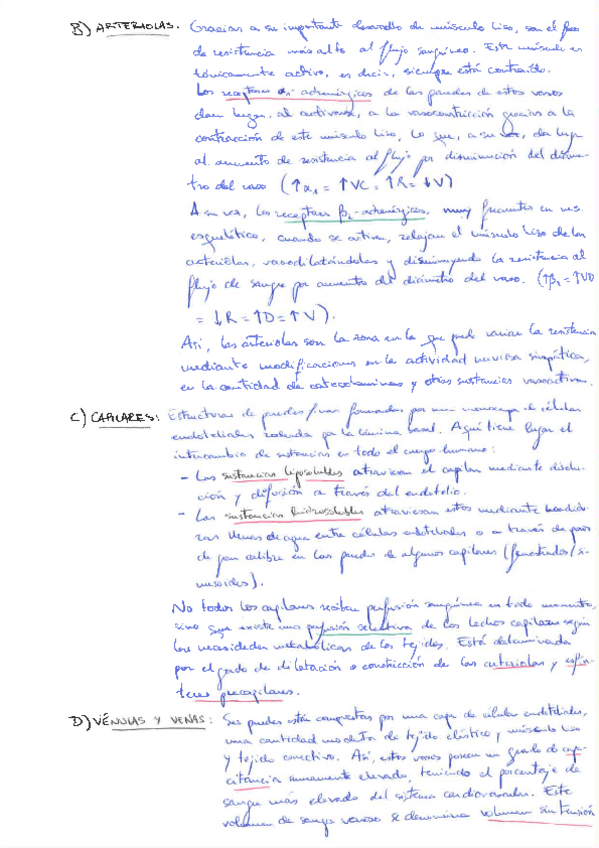 B) ARTERIOLAS. Gracias a su importante desarrollo de músculo liso, son el foco
de resistencia más alto al flujo sanguíneo. Este músculo es
tónicamente activo, es decir, siempre está contraído.
Los receptores α1-adrenérgicos de las paredes de estos vasos
dan lugar, al activarse, a la vasoconstricción gracias a la
contracción de este músculo liso, lo que, a su vez, da lugar
al aumento de resistencia al flujo por disminución del diáme-
tro del vaso (↑α1 = ↑VC = ↑R = ↓V)
A su vez, los receptores β2-adrenérgicos, muy frecuentes en ms.
esquelético, cuando se activan, relajan el músculo liso de las
arteriolas, vasodilatándolas y disminuyendo la resistencia al
flujo de sangre por aumento del diámetro del vaso. (↑β2 = ↑VD
= ↓R = ↑D = ↑V).
Así, las arteriolas son la zona en la que puede variar la resistencia
mediante modificaciones en la actividad nerviosa simpática,
en la cantidad de catecolaminas y otras sustancias vasoactivas.
C) CAPILARES: Estructuras de paredes finas formadas por una monocapa de células
endoteliales rodeada por la lámina basal. Aquí tiene lugar el
intercambio de sustancias en todo el cuerpo humano:
- Las sustancias liposolubles atraviesan el capilar mediante disolu-
ción y difusión a través del endotelio.
- Las sustancias hidrosolubles atraviesan estos mediante hendidu-
ras llenas de agua entre células endoteliales o a través de poros
de gran calibre en las paredes de algunos capilares (fenestrados/si-
nusoides).
No todos los capilares reciben perfusión sanguínea en todo momento,
sino que existe una perfusión selectiva de los lechos capilares según
las necesidades metabólicas de los tejidos. Está determinada
por el grado de dilatación o constricción de las arteriolas y esfín-
teres precapilares.
D) VÉNULAS Y VENAS: Sus paredes están compuestas por una capa de células endoteliales,
una cantidad modesta de tejido elástico y músculo liso
y tejido conectivo. Así, estos vasos poseen un grado de capa-
citancia sumamente elevado, teniendo el porcentaje de
sangre más elevado del sistema cardiovascular. Este
volumen de sangre venoso se denomina volumen sin tensión